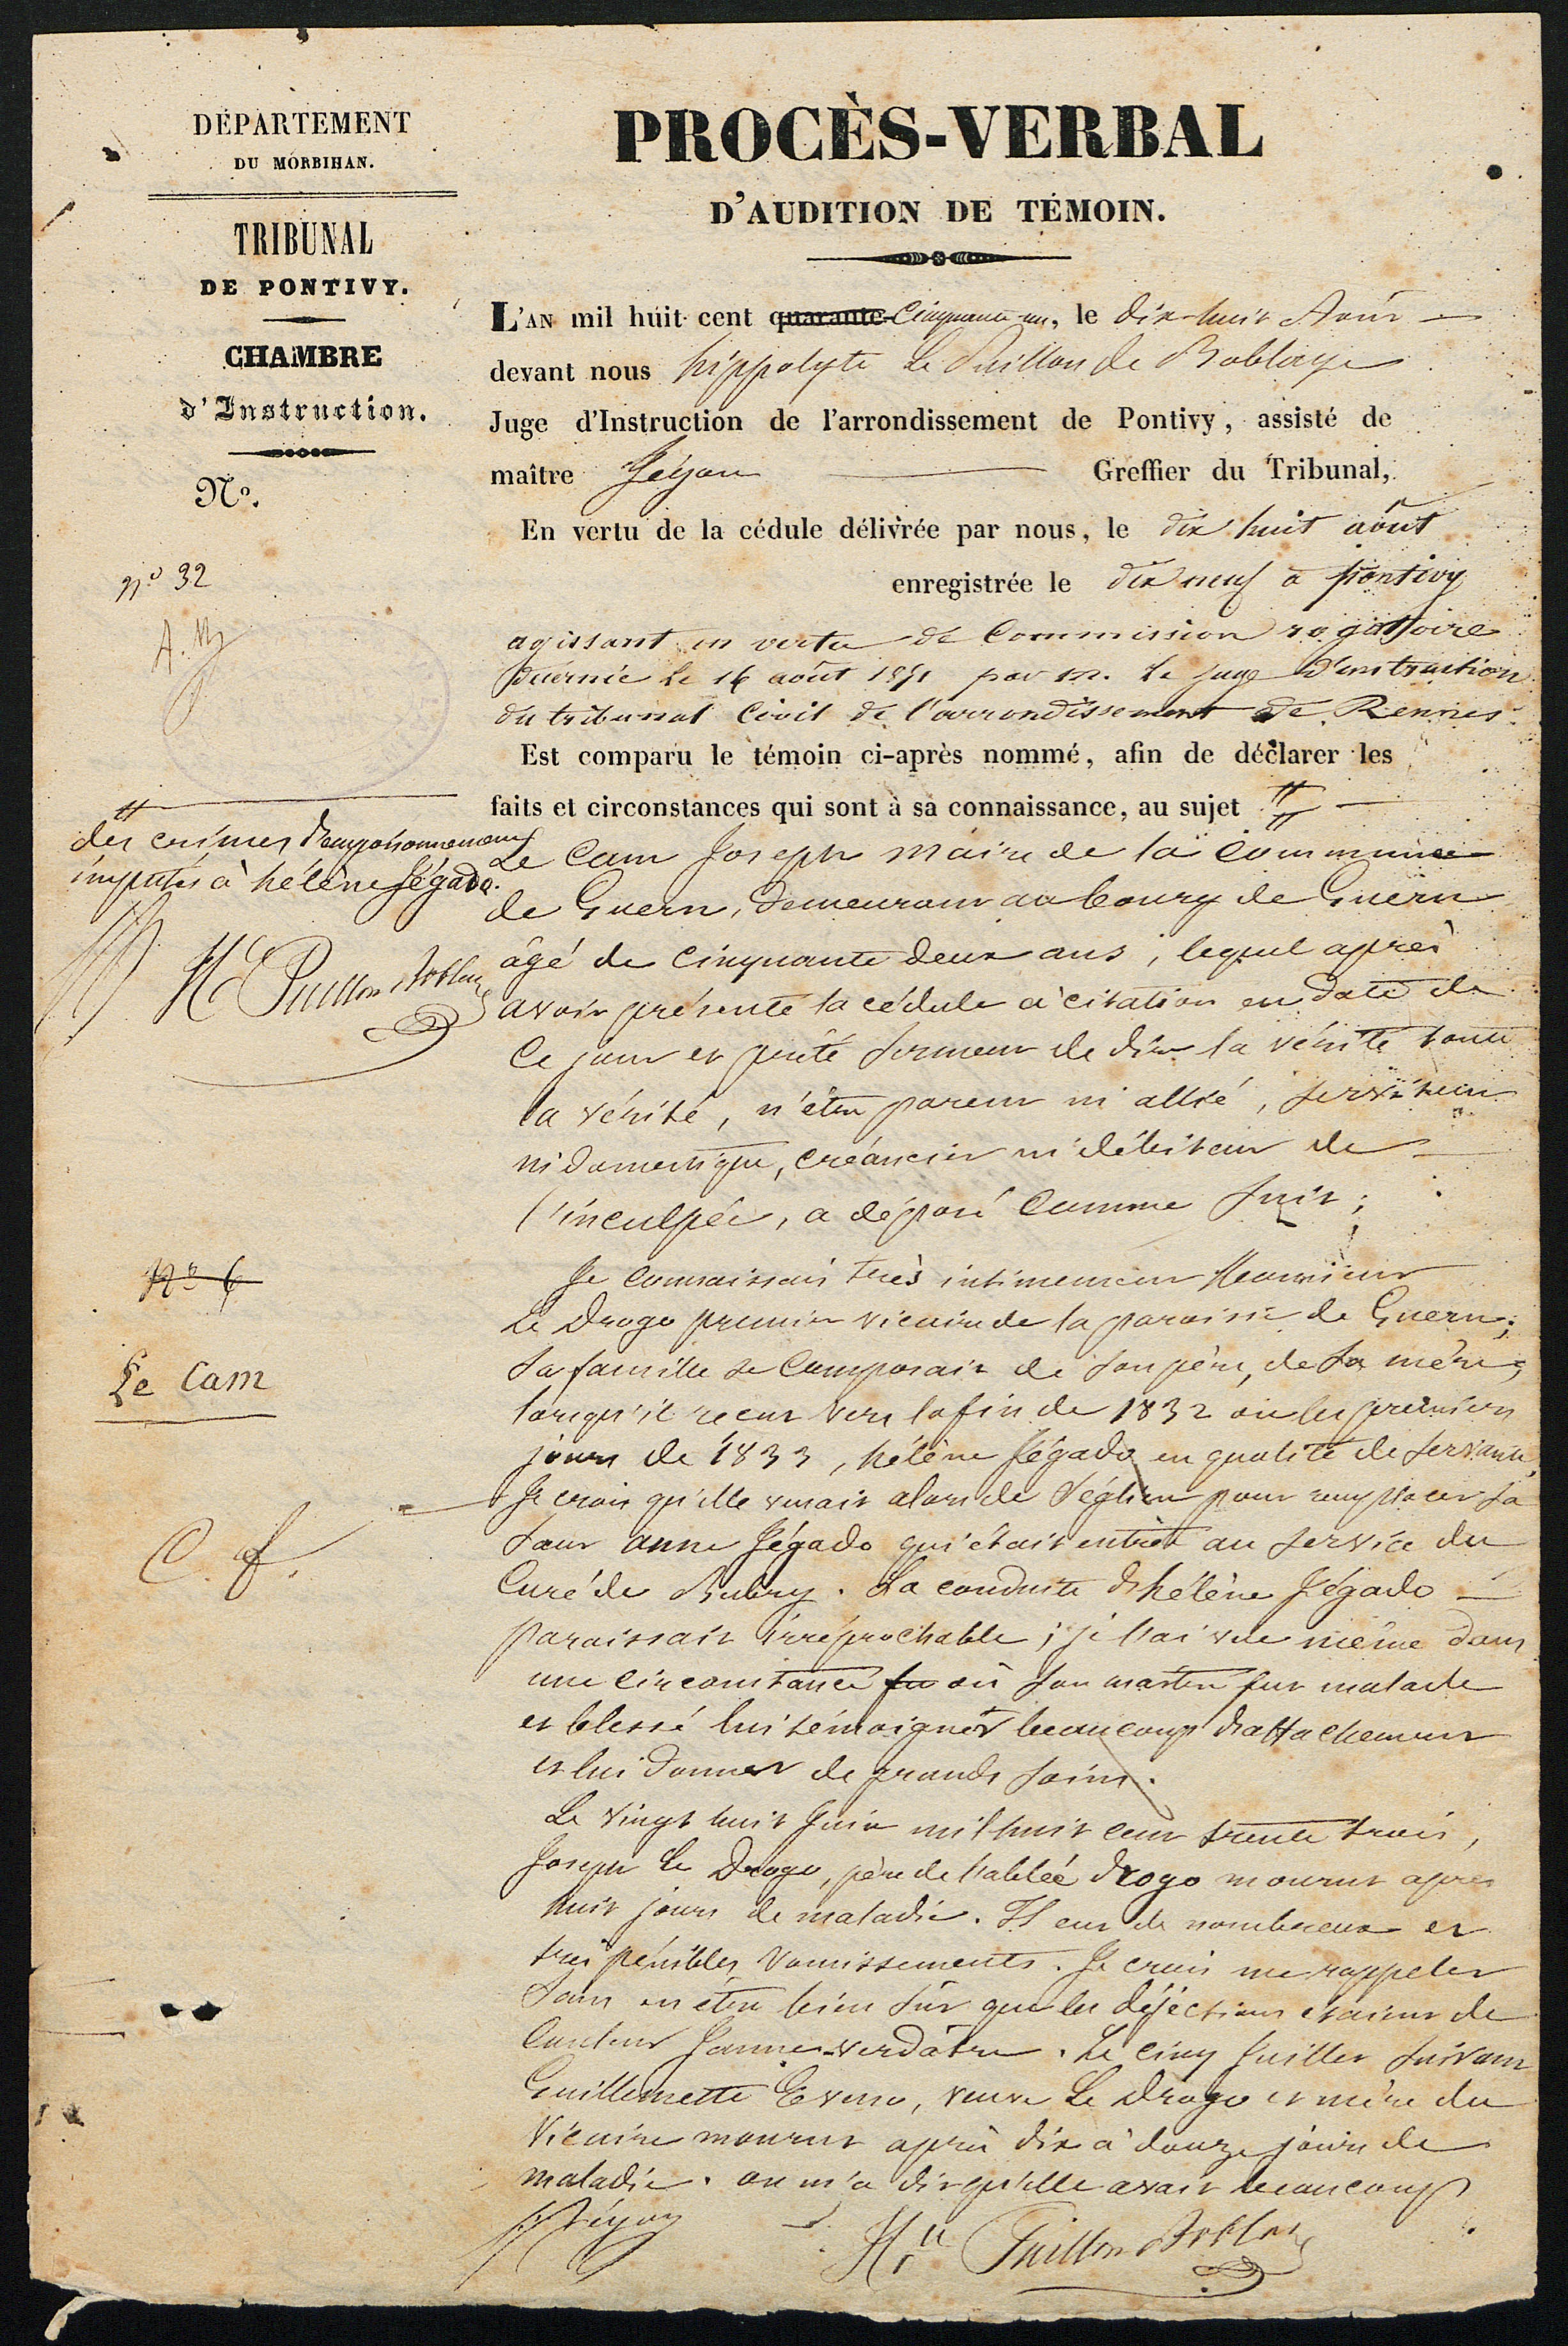 DÉPARTEMENT
DU MORBIHAN.
TRIBUNAL
DE PONTIVY.
CHAMBRE
d'Instruction.
N°.
n° 32
PROCÈS-VERBAL
D'AUDITION DE TÉMOIN.
L'AN mil huit cent quarante cinquante-un, le dix-huit Août
devant nous hippolyte Le Puillon de Boblaye
Juge d'Instruction de l'arrondissement de Pontivy, assisté de
maître Jégou Greffier du Tribunal,
En vertu de la cédule délivrée par nous, le dix huit août
enregistrée le dix neuf à pontivy
agissant en vertu de Commission rogatoire
décernée le 16 août 1851 par m. le juge d'instruction
du tribunal Civil de l'arrondissement de Rennes
Est comparu le témoin ci-après nommé, afin de déclarer les
faits et circonstances qui sont à sa connaissance, au sujet #
# des crimes d'empoisonnement
imputés à hélène Jégado.
Hte Puillon Boblaye
Le Cam Joseph Maire de la commune
de Guern, demeurant au bourg de Guern
âgé de cinquante deux ans, lequel après
avoir présenté la cédule à citation en date de
ce jour et prêté serment de dire la vérité toute
la vérité, n'être parent ni allié, serviteur
ni domestique, créancier ni débiteur de
l'inculpée, a déposé comme suit;
N° 6
Le Cam
C. f.
Je connaissais très intimement Monsieur
Le Drogo premier vicaire de la paroisse de Guern;
sa famille se composait de son père, de sa mère,
lorsqu'il reçut vers la fin de 1832 ou les premiers
jours de 1833, hélène Jégado en qualité de servante,
Je crois qu'elle venait alors de Séglien pour remplacer sa
sœur anne Jégado qui était entrée au service du
Curé de Bubry. La conduite d'hélène Jégado
paraissait irréprochable; je l'ai vue même dans
une circonstance fu où son maître fut malade
et blessé lui témoigner beaucoup d'attachement
et lui donner de grands soins.
Le vingt huit Juin mil huit cent trente trois,
Joseph Le Drogo, père de l'abbé drogo mourut après
huit jours de maladie. Il eut de nombreux et
très pénibles vomissements. Je crois me rappeler
sans en être bien sûr que les déjections étaient de
couleur Jaune-verdâtre. Le cinq Juillet suivant
Guillemette Eveno, veuve Le Drogo et mère du
Vicaire mourut après dix à douze jours de
maladie. on m'a dit qu'elle avait beaucoup
Jégou
Hte Puillon Boblaye